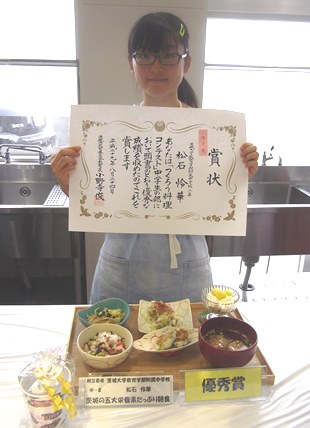 賞状
松石 怜華
あなたはつくろう料理
コンテスト中学生の部に
おいて頭書のとおり優秀な
成績を収めたのでこれを
賞します
平成二十九年八月二十四日
小野寺 俊
茨城大学教育学部附属中学校
中一
松石 怜華
茨城の五大栄養素たっぷり朝食
優秀賞